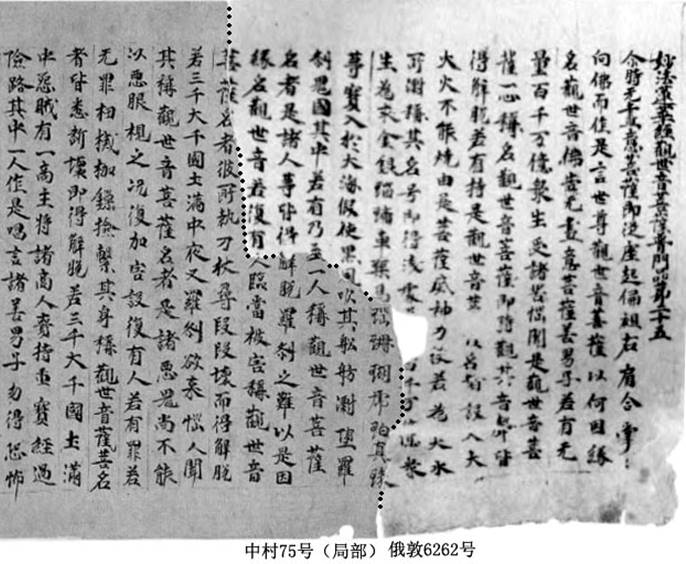 妙法蓮華經觀世音菩薩普門品第二十五
尒時无盡意菩薩即從座起偏袒右肩合掌
向佛而作是言世尊觀世音菩薩以何因緣
名觀世音佛告无盡意菩薩善男子若有无
量百千万億衆生受諸苦惱聞是觀世音菩
薩一心稱名觀世音菩薩即時觀其音聲皆
得解脫若有持是觀世音菩 名者設入大
火火不能燒由是菩薩威神力故若為大水
所漂稱其名号即得淺處 百千万億衆
生為求金銀瑠璃車璖馬瑙珊瑚虎珀真珠
等寶入於大海假使黑風吹其舩舫漂堕羅
刹鬼國其中若有乃至一人稱觀世音菩薩
名者是諸人等皆得解脫羅刹之難以是因
緣名觀世音若復有人臨當被害稱觀世音
菩薩名者彼所執刀杖尋段段壞而得解脫
若三千大千國土滿中夜叉羅刹欲來惱人聞
其稱觀世音菩薩名者是諸惡鬼尚不能
以惡眼視之況復加害設復有人若有罪若
无罪杻械枷鎖撿繫其身稱觀世音薩菩名
者皆悉斷壞即得解脫若三千大千國土滿
中惡賊有一商主將諸商人齎持重寶經過
險路其中一人作是唱言諸善男子勿得恐怖
中村75号（局部）俄敦6262号